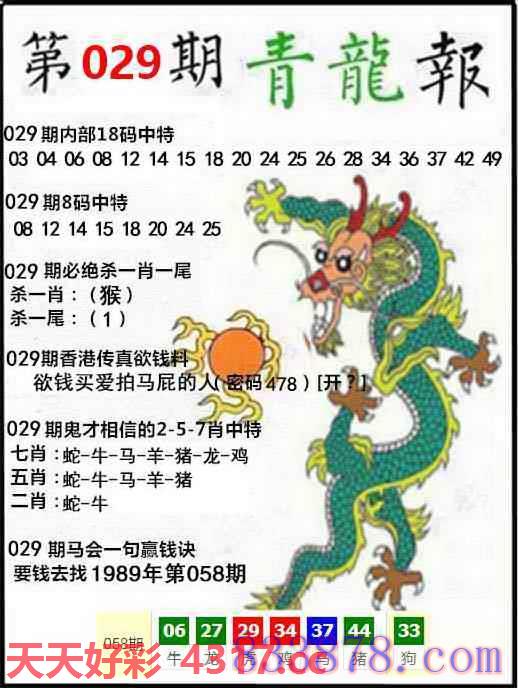 第029期青龍報
029期内部18码中特
03 04 06 08 12 14 15 18 20 24 25 26 28 34 36 37 42 49
029期8码中特
08 12 14 15 18 20 24 25
029期必绝杀一肖一尾
杀一肖：（猴）
杀一尾：（1）
029期香港传真欲钱料
欲钱买爱拍马屁的人(密码478)[开?]
029期鬼才相信的2-5-7肖中特
七肖:蛇-牛-马-羊-猪-龙-鸡
五肖:蛇-牛-马-羊-猪
二肖:蛇-牛
029期马会一句赢钱诀
要钱去找1989年第058期
058期 06 27 29 34 37 44 33
牛 龙 虎 鸡 马 猪 狗
天天好彩 4317.cc
838878.com